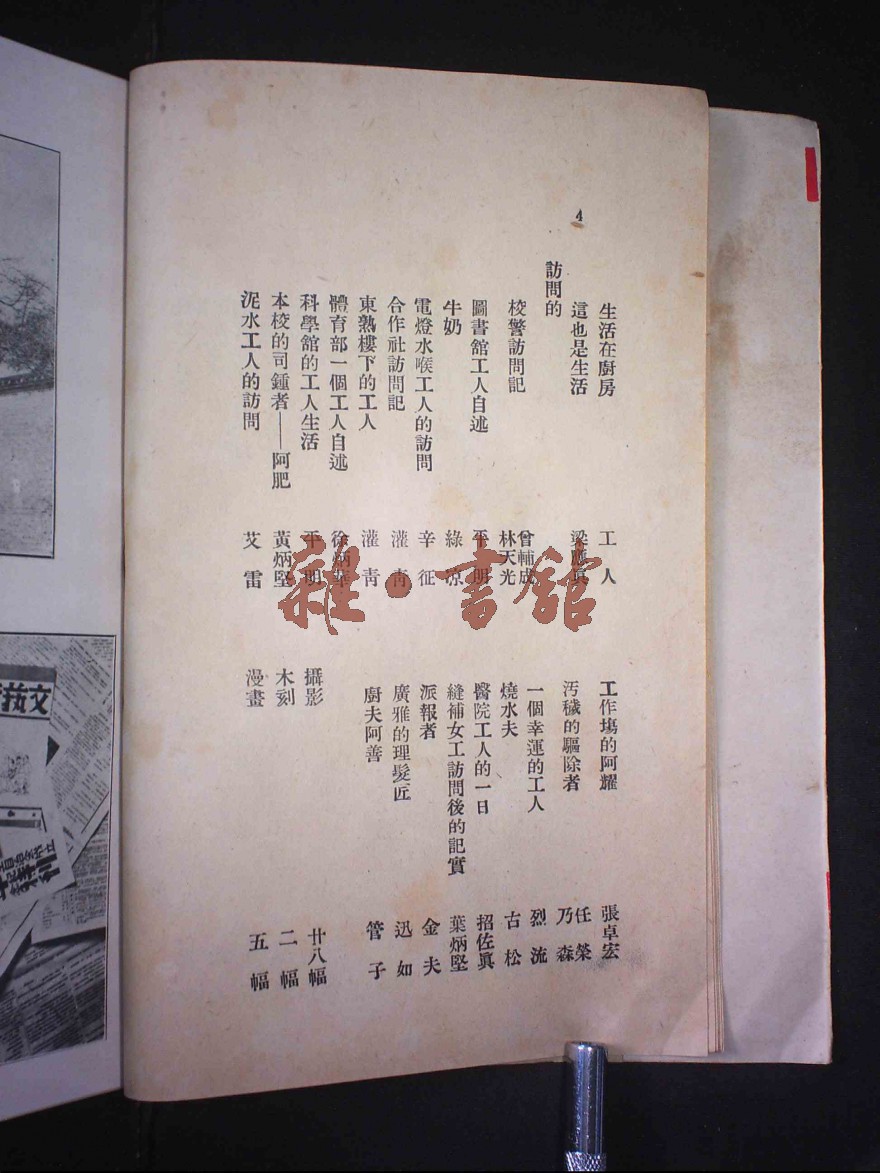 4
生活在廚房 工人
這也是生活 梁應眞
訪問的
校警訪問記 曾輔成 林天光
圖書舘工人自述 平明
牛奶 綠凉
電燈水喉工人的訪問 辛征
合作社訪問記 灌靑
東熟樓下的工人 灌靑
體育部一個工人自述 徐炳華
科學舘的工人生活 平明
本校的司鍾者——阿肥 黃炳堅
泥水工人的訪問 艾雷
工作塲的阿耀 張卓宏
汚穢的驅除者 任榮 乃森
一個幸運的工人 烈流
燒水夫 古松
醫院工人的一日 招佐眞
縫補女工訪問後的記實 葉炳堅
派報者 金夫
廣雅的理髮匠 迅如
廚夫阿善 管子
攝影 廿八幅
木刻 二幅
漫畫 五幅
雜·書舘